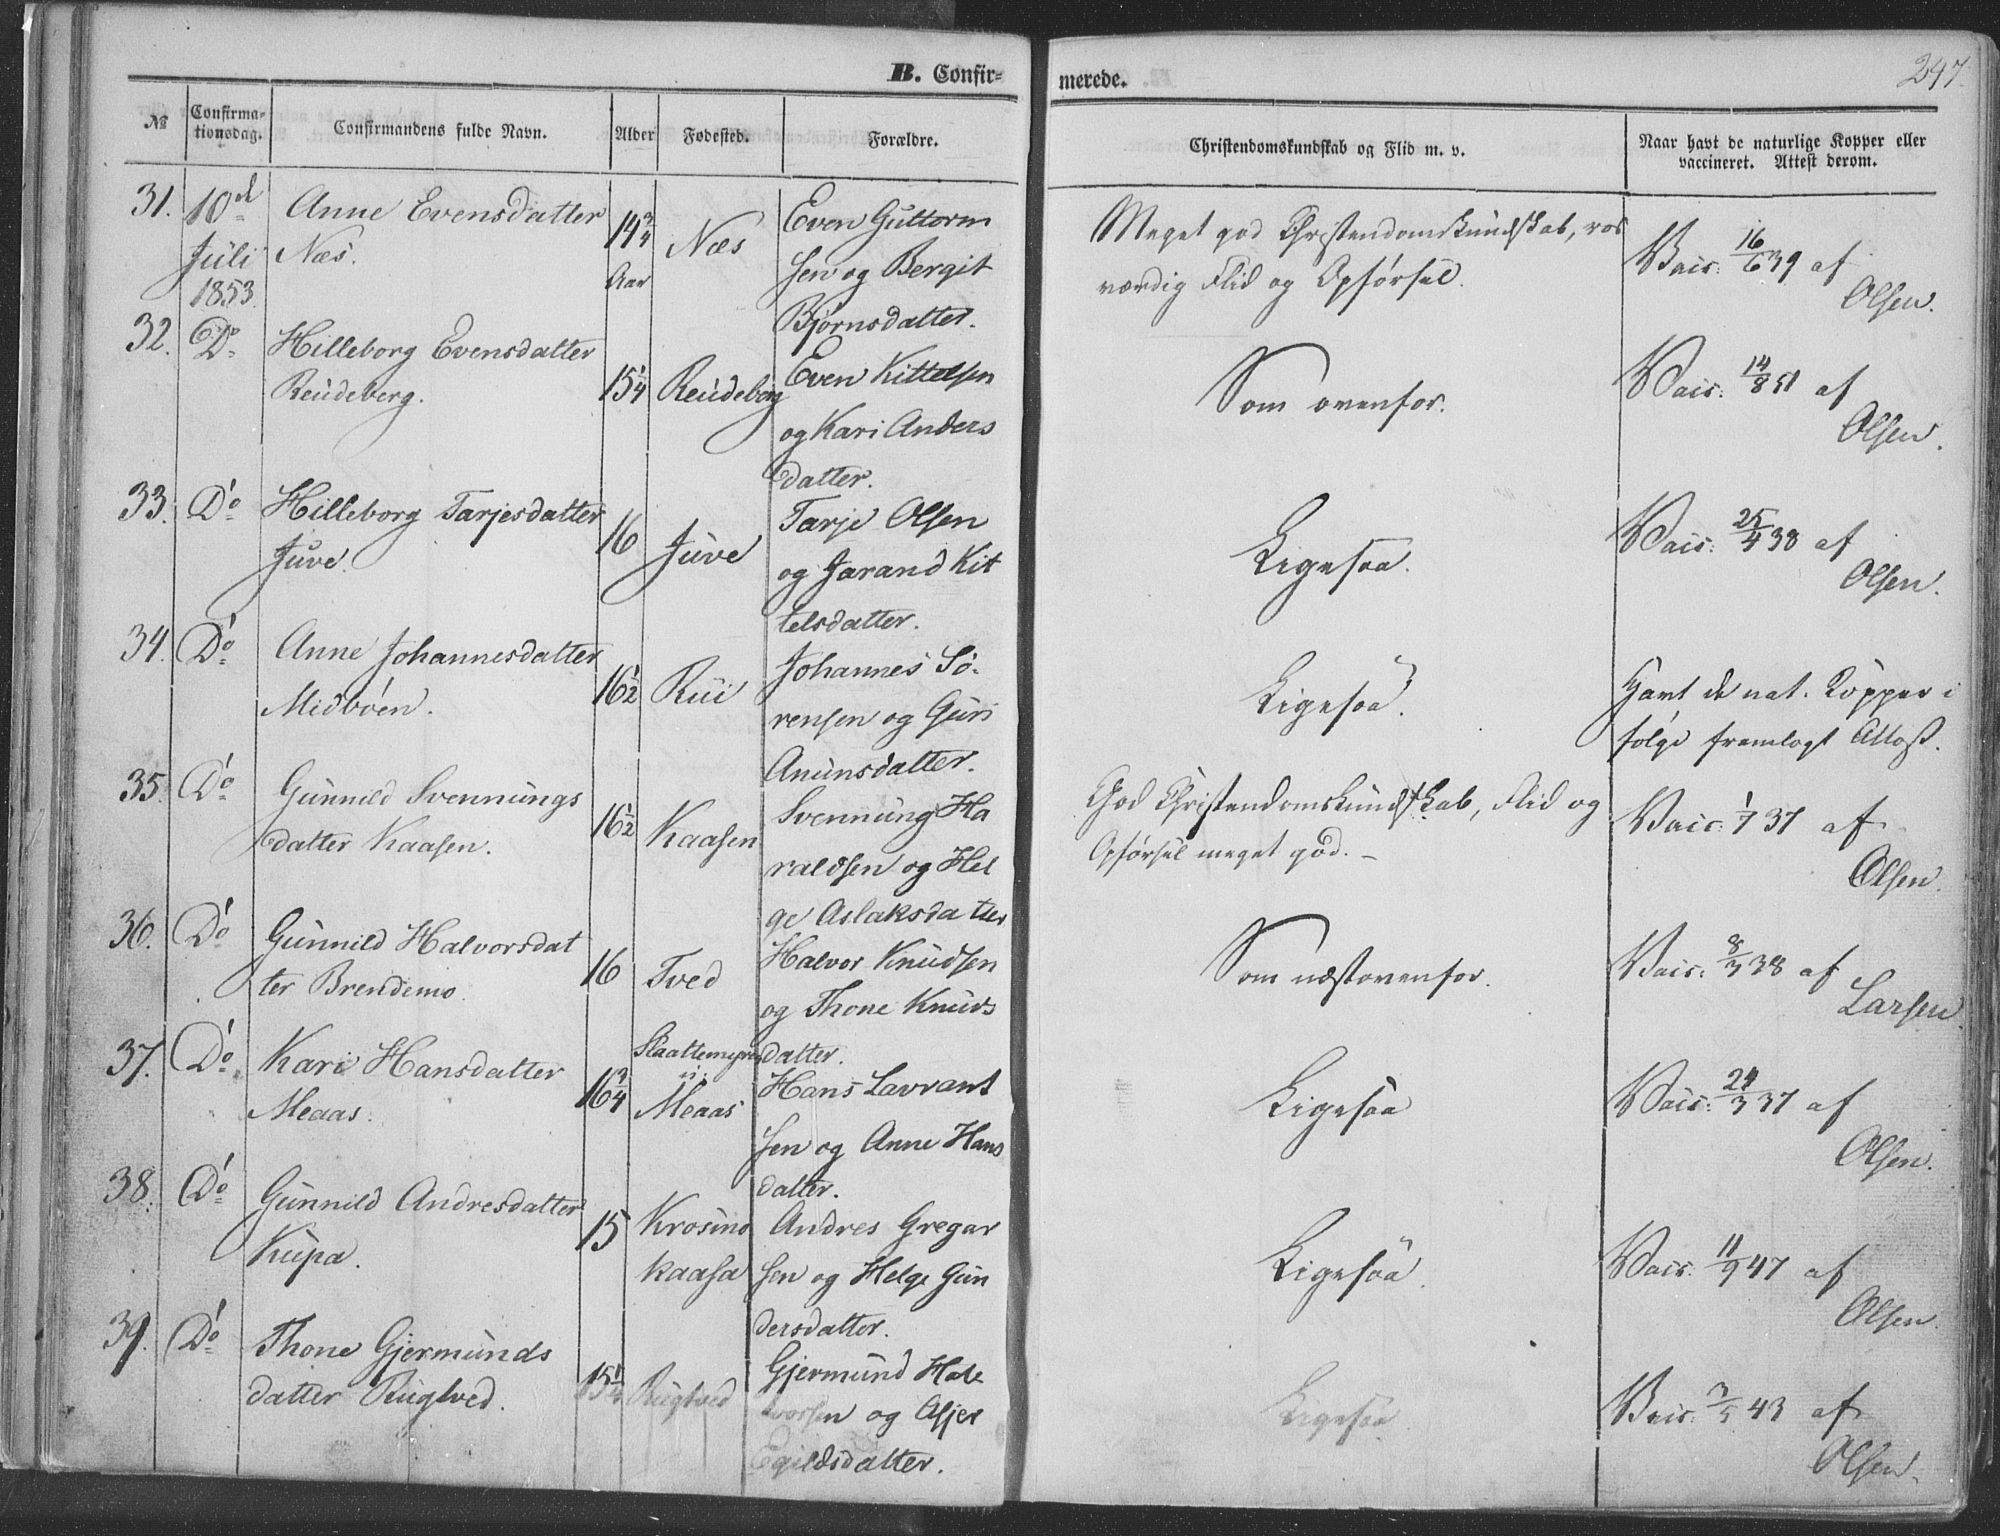 B. Confir=
merede.
247.
№
Confirma-
tionsdag.
Confirmandens fulde Navn.
Alder
Fødested.
Forældre.
Christendomskundskab og Flid m. v.
Naar havt de naturlige Kopper eller
vaccineret. Attest derom.
31.
10de
Juli
1853.
Anne Evensdatter
Næs.
14 3/4
Aar
Næs
Even Guttorm
sen og Bergit
Bjørnsdatter.
Meget god Christendomskundskab, ros
værdig Flid og Opførsel.
Vacc: 16/6 39 af
Olsen.
32.
Do
Hilleborg Evensdatter
Reudeberg.
15 1/4
Reudeberg
Even Kittelsen
og Kari Anders
datter.
Som ovenfor.
Vacc: 14/8 51 af
Olsen.
33.
Do
Hilleborg Tarjesdatter
Juve.
16
Juve
Tarje Olsen
og Jarand Kit
telsdatter.
Ligesaa.
Vacc: 25/4 38 af
Olsen.
34.
Do
Anne Johannesdatter
Midbøen.
16 1/2
Rui
Johannes Sø-
rensen og Guri
Anunsdatter.
Ligesaa.
Havt de nat. Kopper i
følge fremlagt Attest.
35.
Do
Gunnild Svennungs
datter Kaasen.
16 1/2
Kaasen
Svennung Ha
raldsen og Hel
ge Aslaksdatter
God Christendomskundskab, Flid og
Opførsel meget god. –
Vacc: 1/7 37 af
Olsen.
36.
Do
Gunnild Halvorsdat
ter Brendemo.
16
Tved
Halvor Knudsen
og Thone Knuds
datter.
Som næstovenfor.
Vacc: 8/3 38 af
Larsen.
37.
Do
Kari Hansdatter
Meaas.
16 3/4
Slaattemyren
u:
Meaas
Hans Lavrant
sen og Anne Hans
datter.
Ligesaa
Vacc: 24/3 37 af
Olsen.
38.
Do
Gunnild Andresdatter
Kupa.
15
Krosmo
kaasa
Andres Gregar
sen og Helge Gun
dersdatter.
Ligesaa.
Vacc: 11/9 47 af
Olsen.
39.
Do
Thone Gjermunds
datter Rugtved.
15 1/4
Rugtved
Gjermund Hal
vorsen og Asjer
Egildsdatter.
Ligesaa.
Vacc: 3/5 43 af
Olsen.